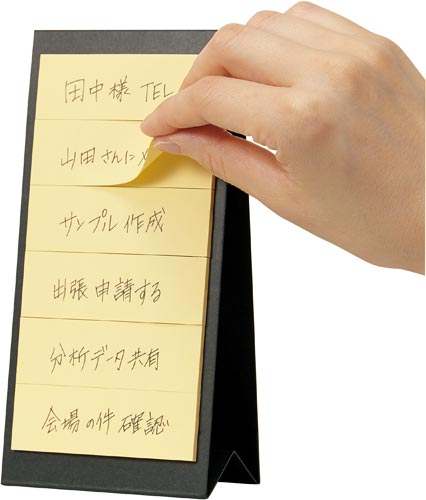 田中様 TEL
山田さんに
サンプル作成
出張申請する
分析データ共有
会場の件確認